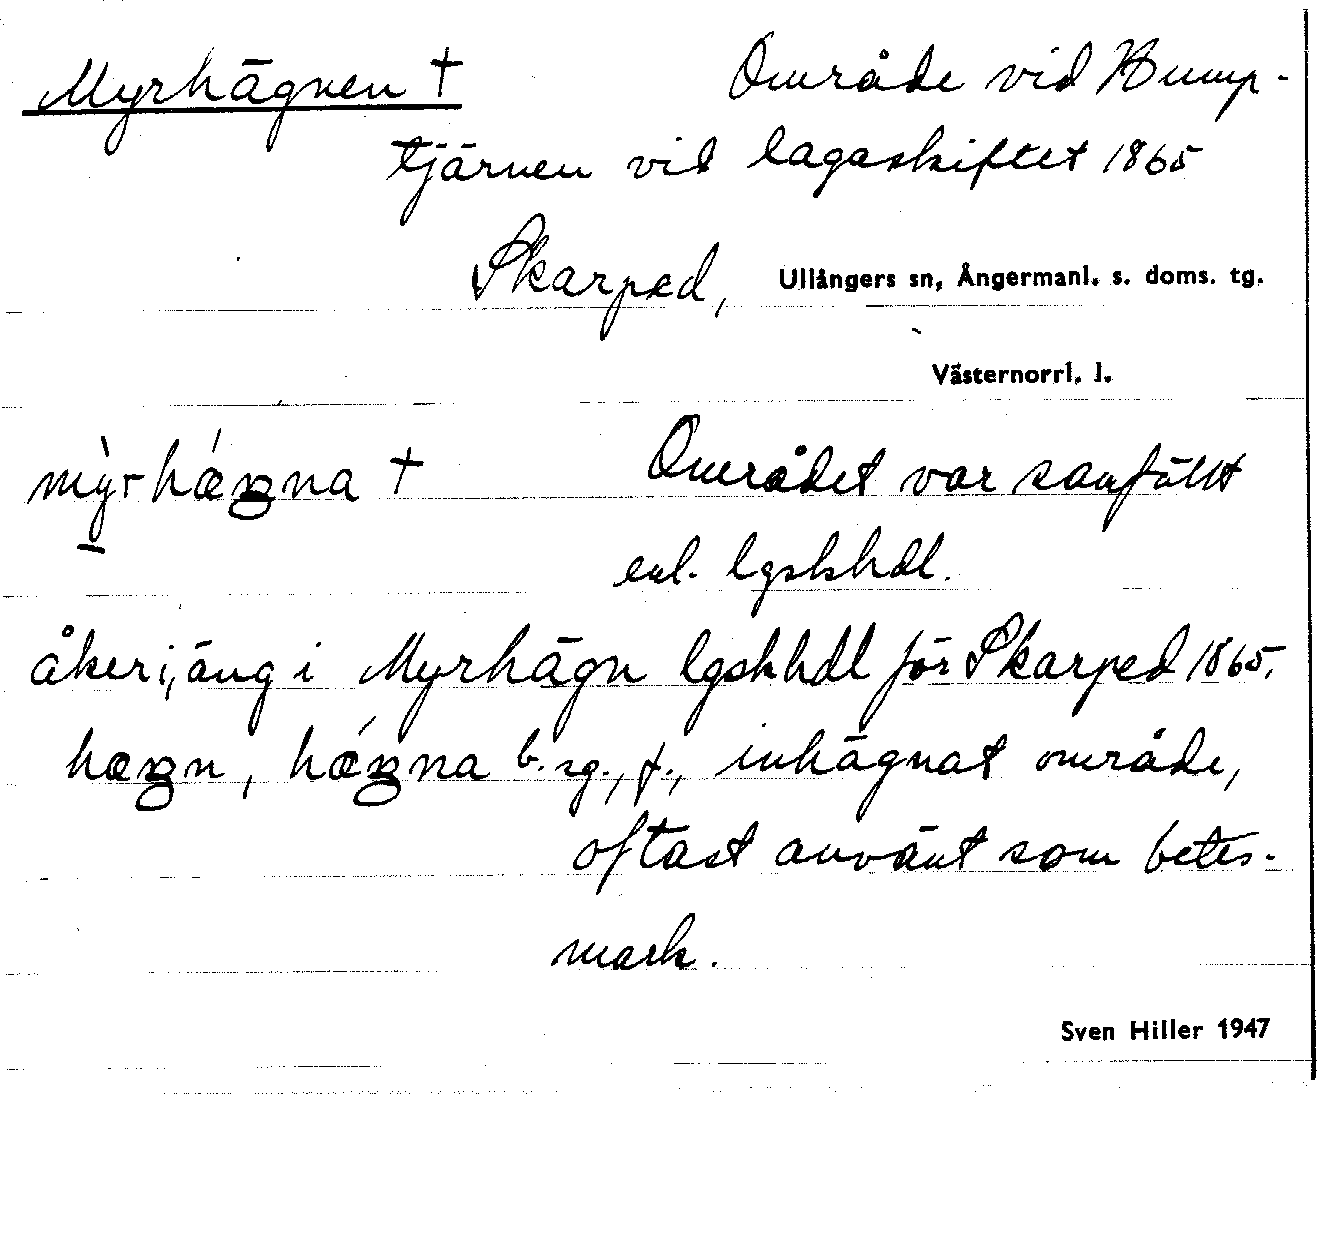 Myrhägnen † Område vid Hump-
tjärnen vid lagaskiftet 1865
Skarped, Ullångers sn, Ångermanl. s. doms. tg.
Västernorrl. l.
mỳrhǽgna † Området var samfällt
enl. lgskhdl.
åker i, äng i Myrhägn lgskhdl för Skarped 1865.
hægn, hǽgna b. sg., f., inhägnat område,
oftast använt som betes-
mark.
Sven Hiller 1947